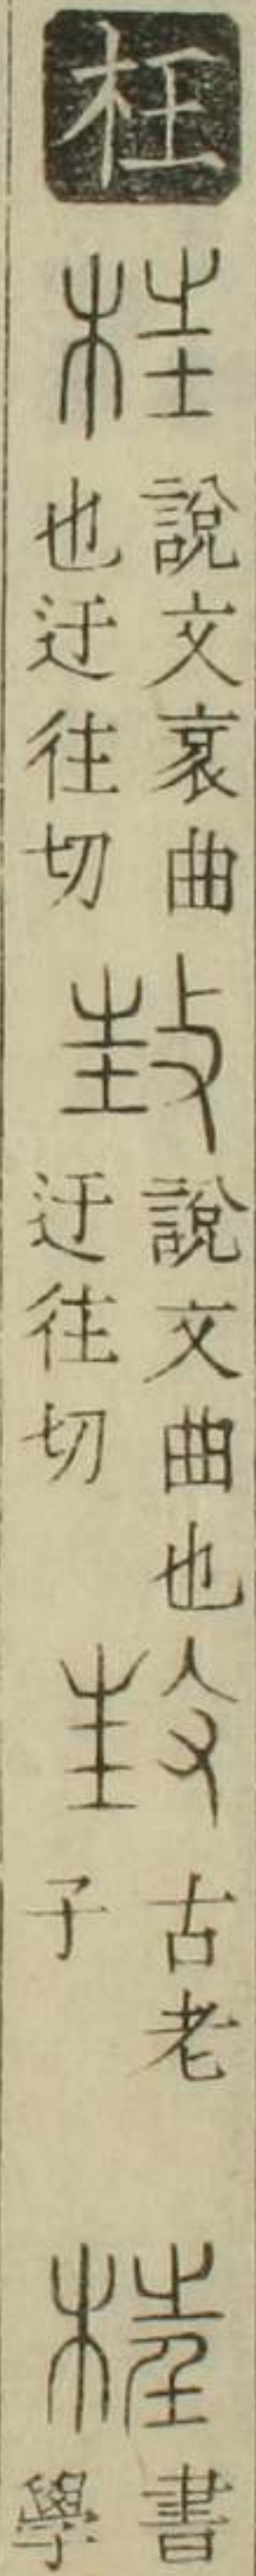 枉
說文衺曲
也迂往切
說文曲也
迂往切
古老
子
書
學